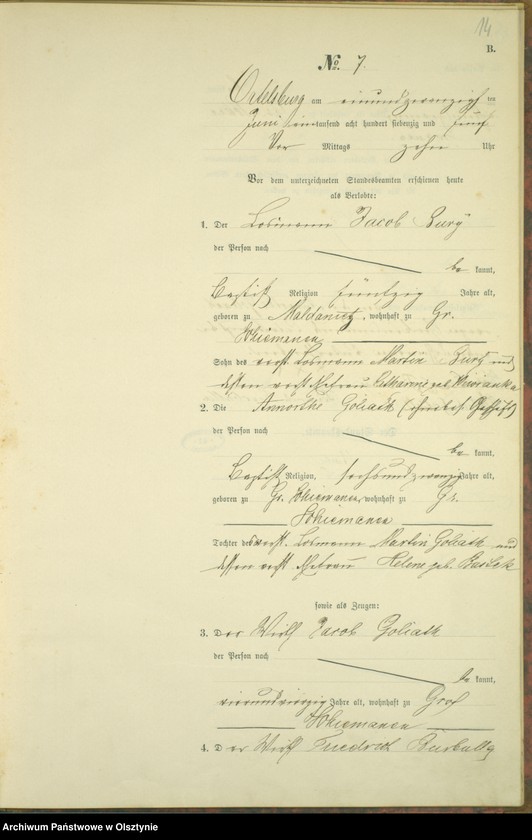 14
B.
No. 7.
Ortelsburg am einundzwanzigsten
Juni eintausend acht hundert siebenzig und fünf
Vor Mittags zehn Uhr
Vor dem unterzeichneten Standesbeamten erschienen heute
als Verlobte:
1. Der Losmann Jacob Bury
der Person nach
be kannt,
Baptist Religion fünfzig Jahre alt,
geboren zu Maldanietz, wohnhaft zu Gr.
Schiemanen
Sohn des verst. Losmann Martin Bury und
dessen verst. Ehefrau Catharine geb.
2. Die Annorthe Goliath
der Person nach
be kannt,
Baptist Religion, sechsundzwanzig Jahre alt,
geboren zu Gr. Schiemanen, wohnhaft zu Gr.
Schiemanen
Tochter des verst. Losmann Martin Goliath und
dessen verst. Ehefrau Helene geb.
sowie als Zeugen:
3. Der Wirth Jacob Goliath
der Person nach
be kannt,
vierundvierzig Jahre alt, wohnhaft zu Groß
Schiemanen
4. Der Wirth Friedrich
Archiwum Państwowe w Olsztynie